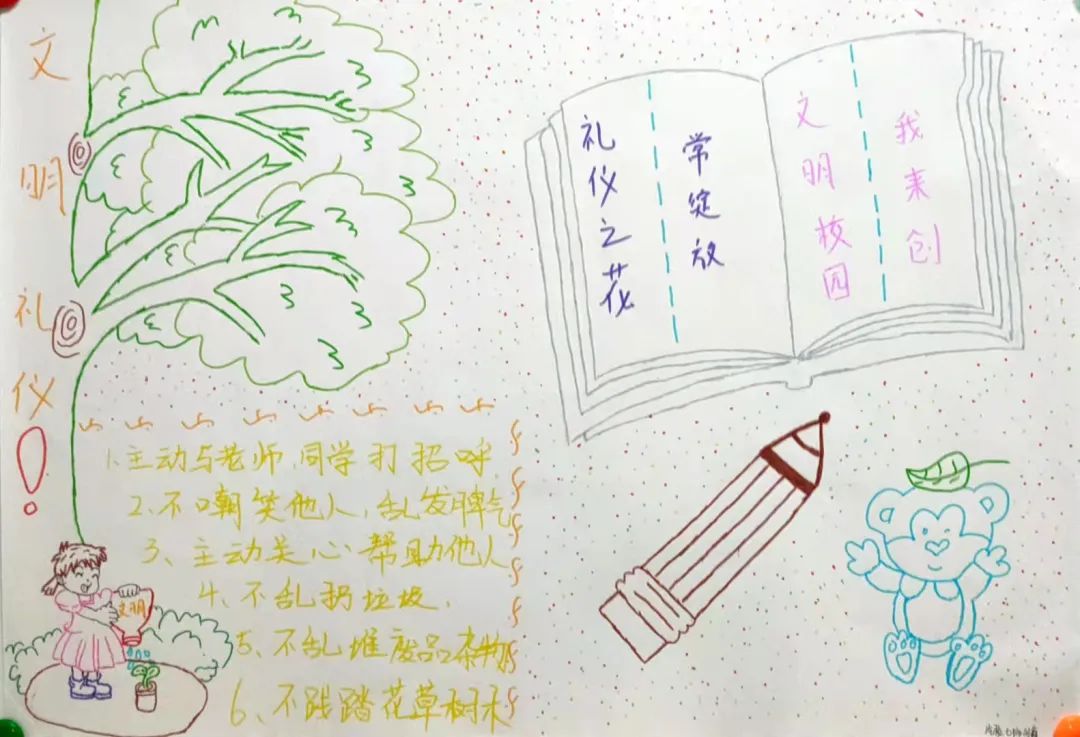 文明礼仪!
礼仪之花
常绽放
文明校园
我来创
1.主动与老师、同学打招呼
2、不嘲笑他人,乱发脾气
3、主动关心帮助他人
4、不乱扔垃圾.
5、不乱堆废品杂物
6、不践踏花草树木
文明